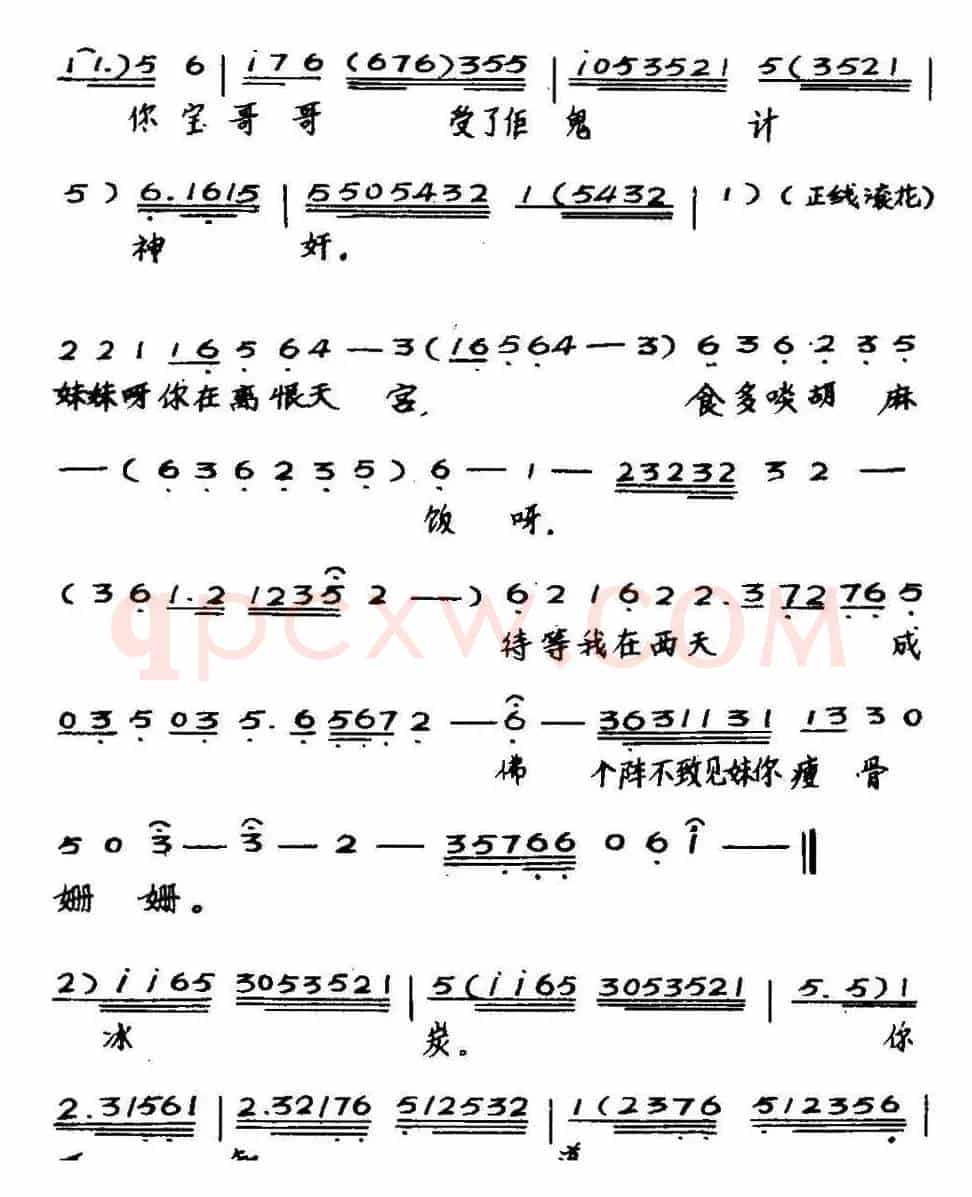 i i.)5 6 | i 7 6 (676)355 | i053521 5(3521 |
你宝哥哥 受了佢鬼 计
5) 6.1615 | 5505432 1(5432 | 1) (正线滚花)
神 奸。
2 2 1 16 5 64 — 3(16564 — 3) 6 3 6 2 3 5
妹妹呀你在离恨天 宫, 食多啖胡 麻
— (6 3 6 2 3 5) 6 — 1 — 23232 3 2 —
饭 呀.
(3 6 1.2 1235 2 —) 6 2 1 6 2 2.3 72 76 5
待等我在两天 成
qpcxw.COM
03 5 03 5. 6 567 2 — 6 — 3631131 13 3 0
佛 个阵不致见妹你瘦 骨
5 0 3 — 3 — 2 — 35766 0 6 i —
姗 姗。
2) i i65 3053521 | 5(i i65 3053521 | 5. 5) 1
冰 炭。 你
2.31561 | 2.32176 512532 | 1(2376 512356 |